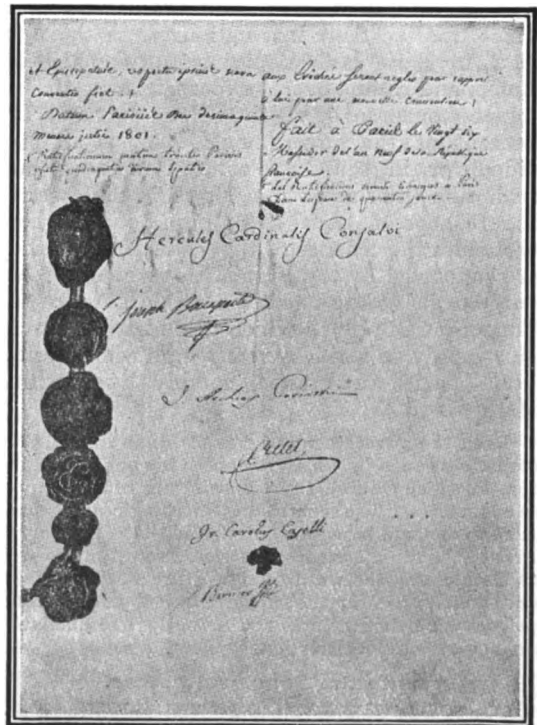 et Episcopatus, respectu ipsius nova
Conventio fiet. /.
Datum Parisiis die decimaquinta
mensis julii 1801.
aux Evêchés seront réglés par rapport
à lui par une nouvelle Convention /
fait à Paris le Vingt six
Messidor de l'an neuf de la République
française.
Les ratifications seront échangées à Paris
dans l'espace de quarante jours.
Hercules Cardinalis Consalvi
Joseph Bonaparte
J. Archiep.
Cretet
Fr. Carolus Caselli
Bernier